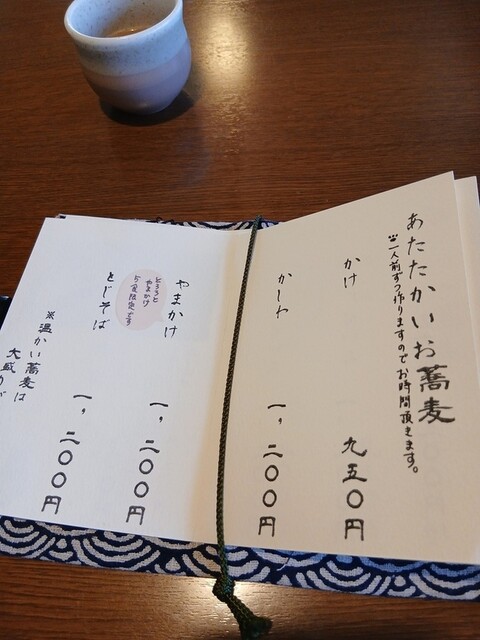 あたたかいお蕎麦
※一人前ずつ作りますのでお時間頂きます。
かけ
九五〇円
かしわ
一，二〇〇円
やまかけ
一，二〇〇円
とろろと
やまかけ
5食限定です
とじそば
一，二〇〇円
※温かい蕎麦は
大盛りが